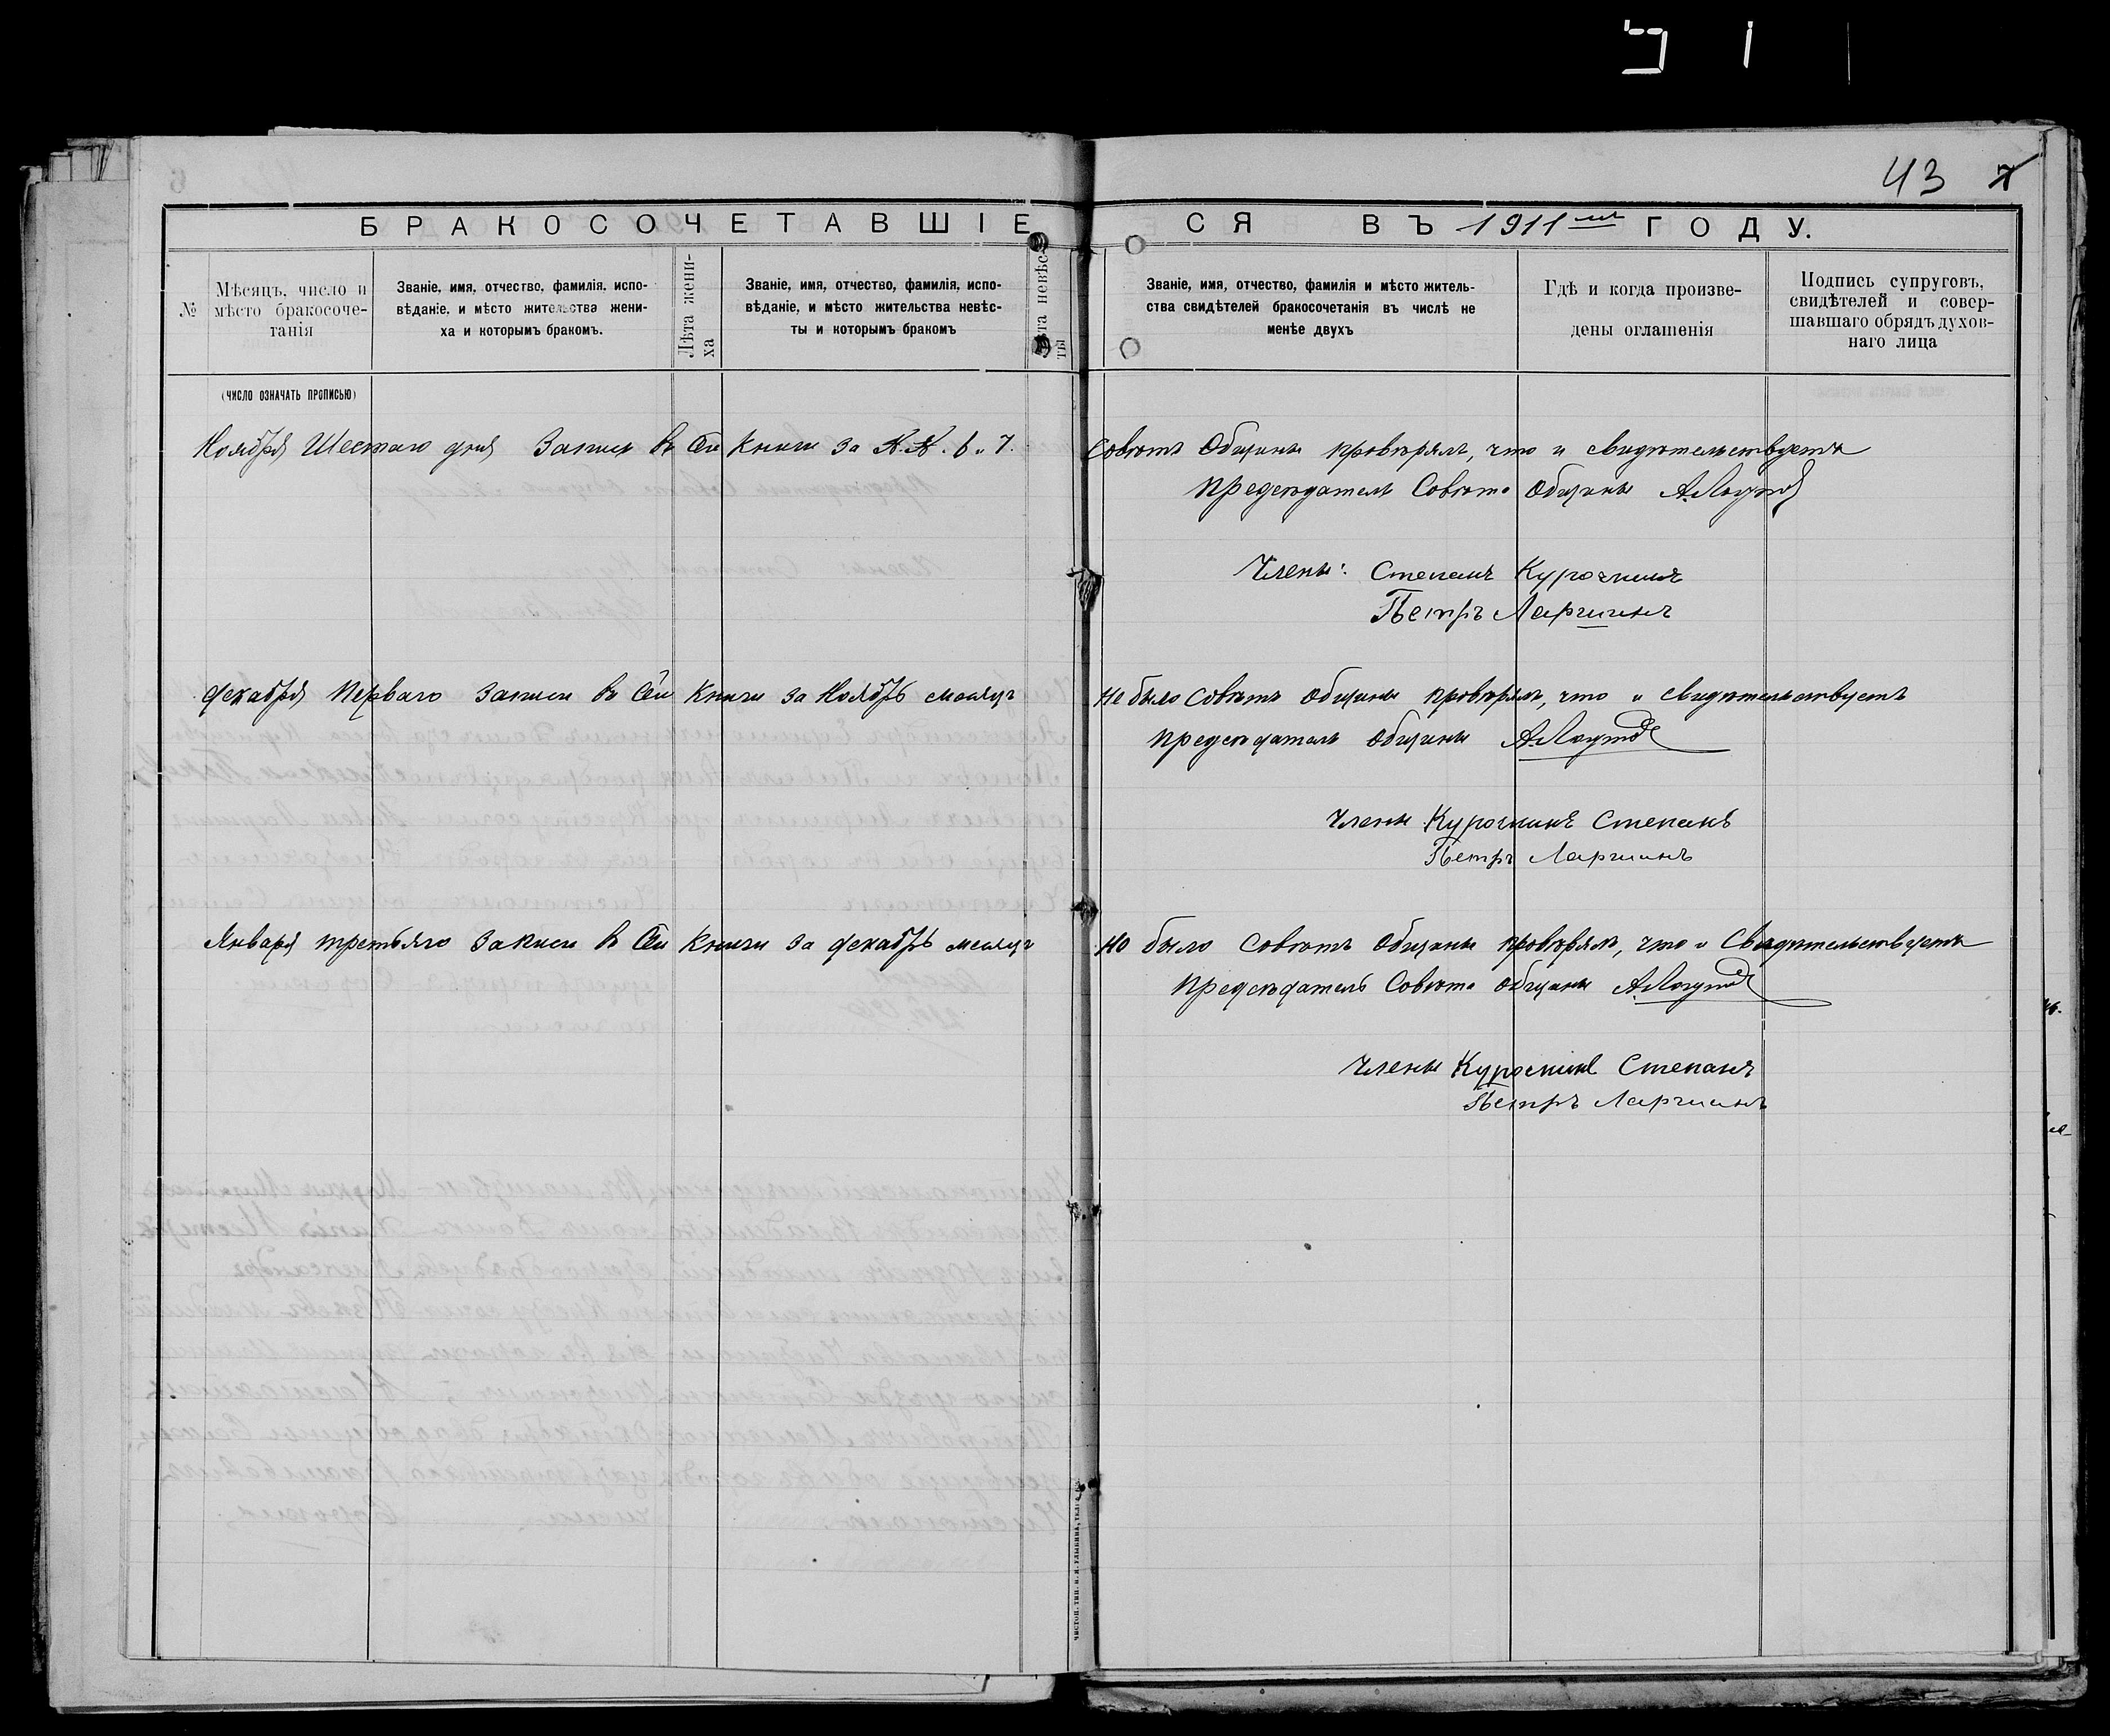 43 7
БРАКОСОЧЕТАВШІЕСЯ ВЪ 1911 ГОДУ.
№
Мѣсяцъ, число и мѣсто бракосоче-
танія
Званіе, имя, отчество, фамилія, испо-
вѣданіе, и мѣсто жительства жени-
ха и которымъ бракомъ.
Лѣта жени-
ха
Званіе, имя, отчество, фамилія, испо-
вѣданіе, и мѣсто жительства невѣс-
ты и которымъ бракомъ
Лѣта невѣс-
ты
Званіе, имя, отчество, фамилія и мѣсто житель-
ства свидѣтелей бракосочетанія въ числѣ не
менѣе двухъ
Гдѣ и когда произве-
дены оглашенія
Подпись супруговъ,
свидѣтелей и совер-
шавшаго обрядъ духов-
наго лица
(ЧИСЛО ОЗНАЧАТЬ ПРОПИСЬЮ)
Ноября Шестаго дня Записи въ Сей Книги за №.№. 6 и 7. Совѣтъ Общины провѣрялъ, что и свидѣтельствуетъ
Предсѣдатель Совѣта Общины
Члены: Степанъ Курочкинъ
Петръ Ларчинъ
Декабря Перваго Записи въ Сей Книги за Ноябрь мѣсяцъ Не было Совѣтъ Общины провѣрялъ, что и свидѣтельствуетъ
Предсѣдатель Общины
Члены Курочкинъ Степанъ
Петръ Ларчинъ
Января третьяго Записи въ Сей Книги за декабрь мѣсяцъ не было Совѣтъ Общины провѣрялъ, что и Свидѣтельствуетъ
Предсѣдатель Совѣта Общины
Члены Курочкинъ Степанъ
Петръ Ларчинъ